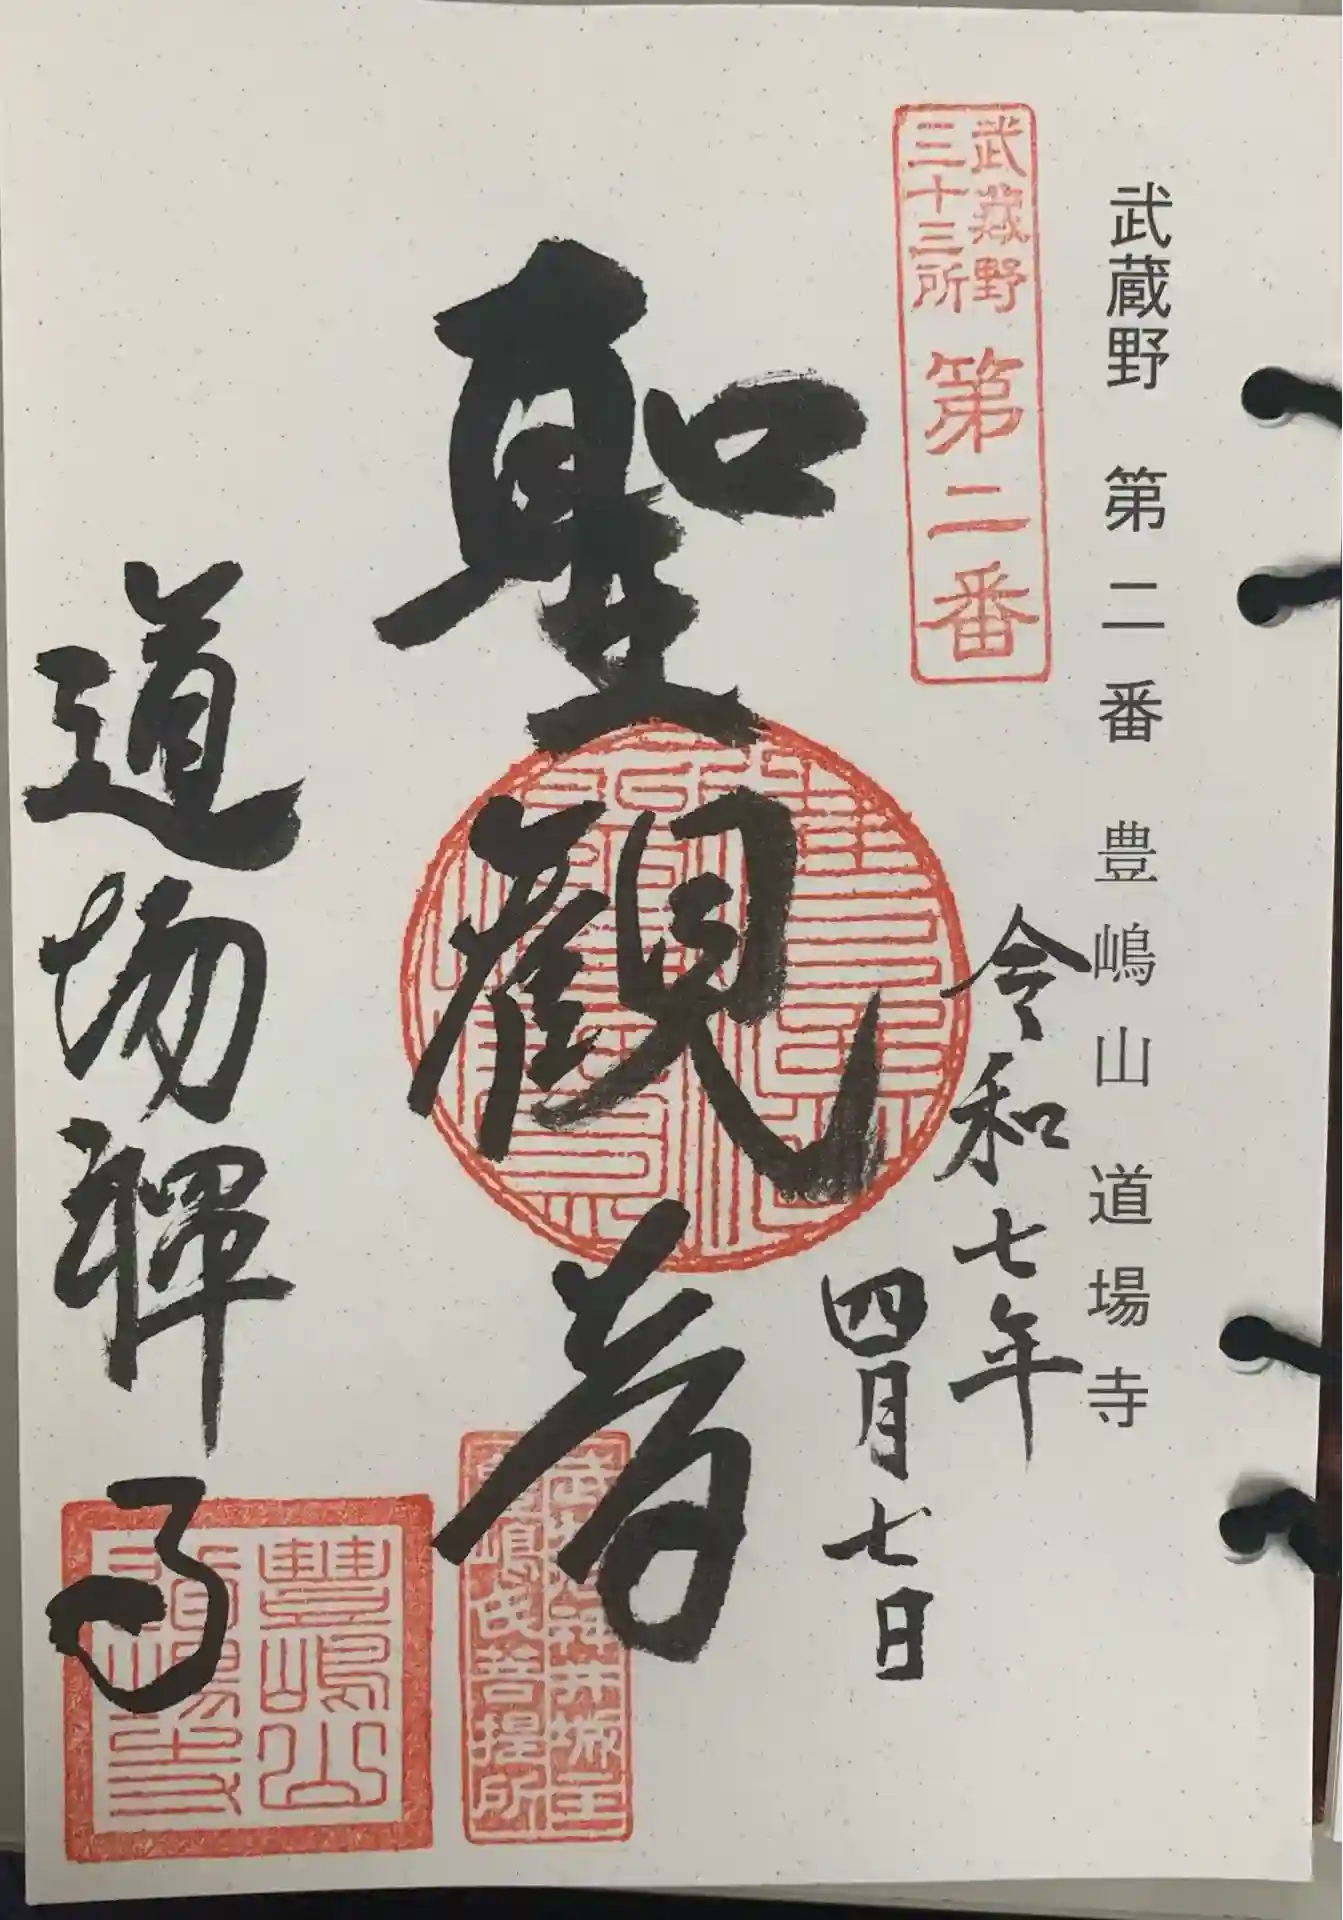 武蔵野 第二番 豊嶋山 道場寺
武蔵野
三十三所
第二番
令和七年
四月七日
聖觀音
道場禅寺
武州石神井城主
豊嶋氏菩提所
豊嶋山
道場寺